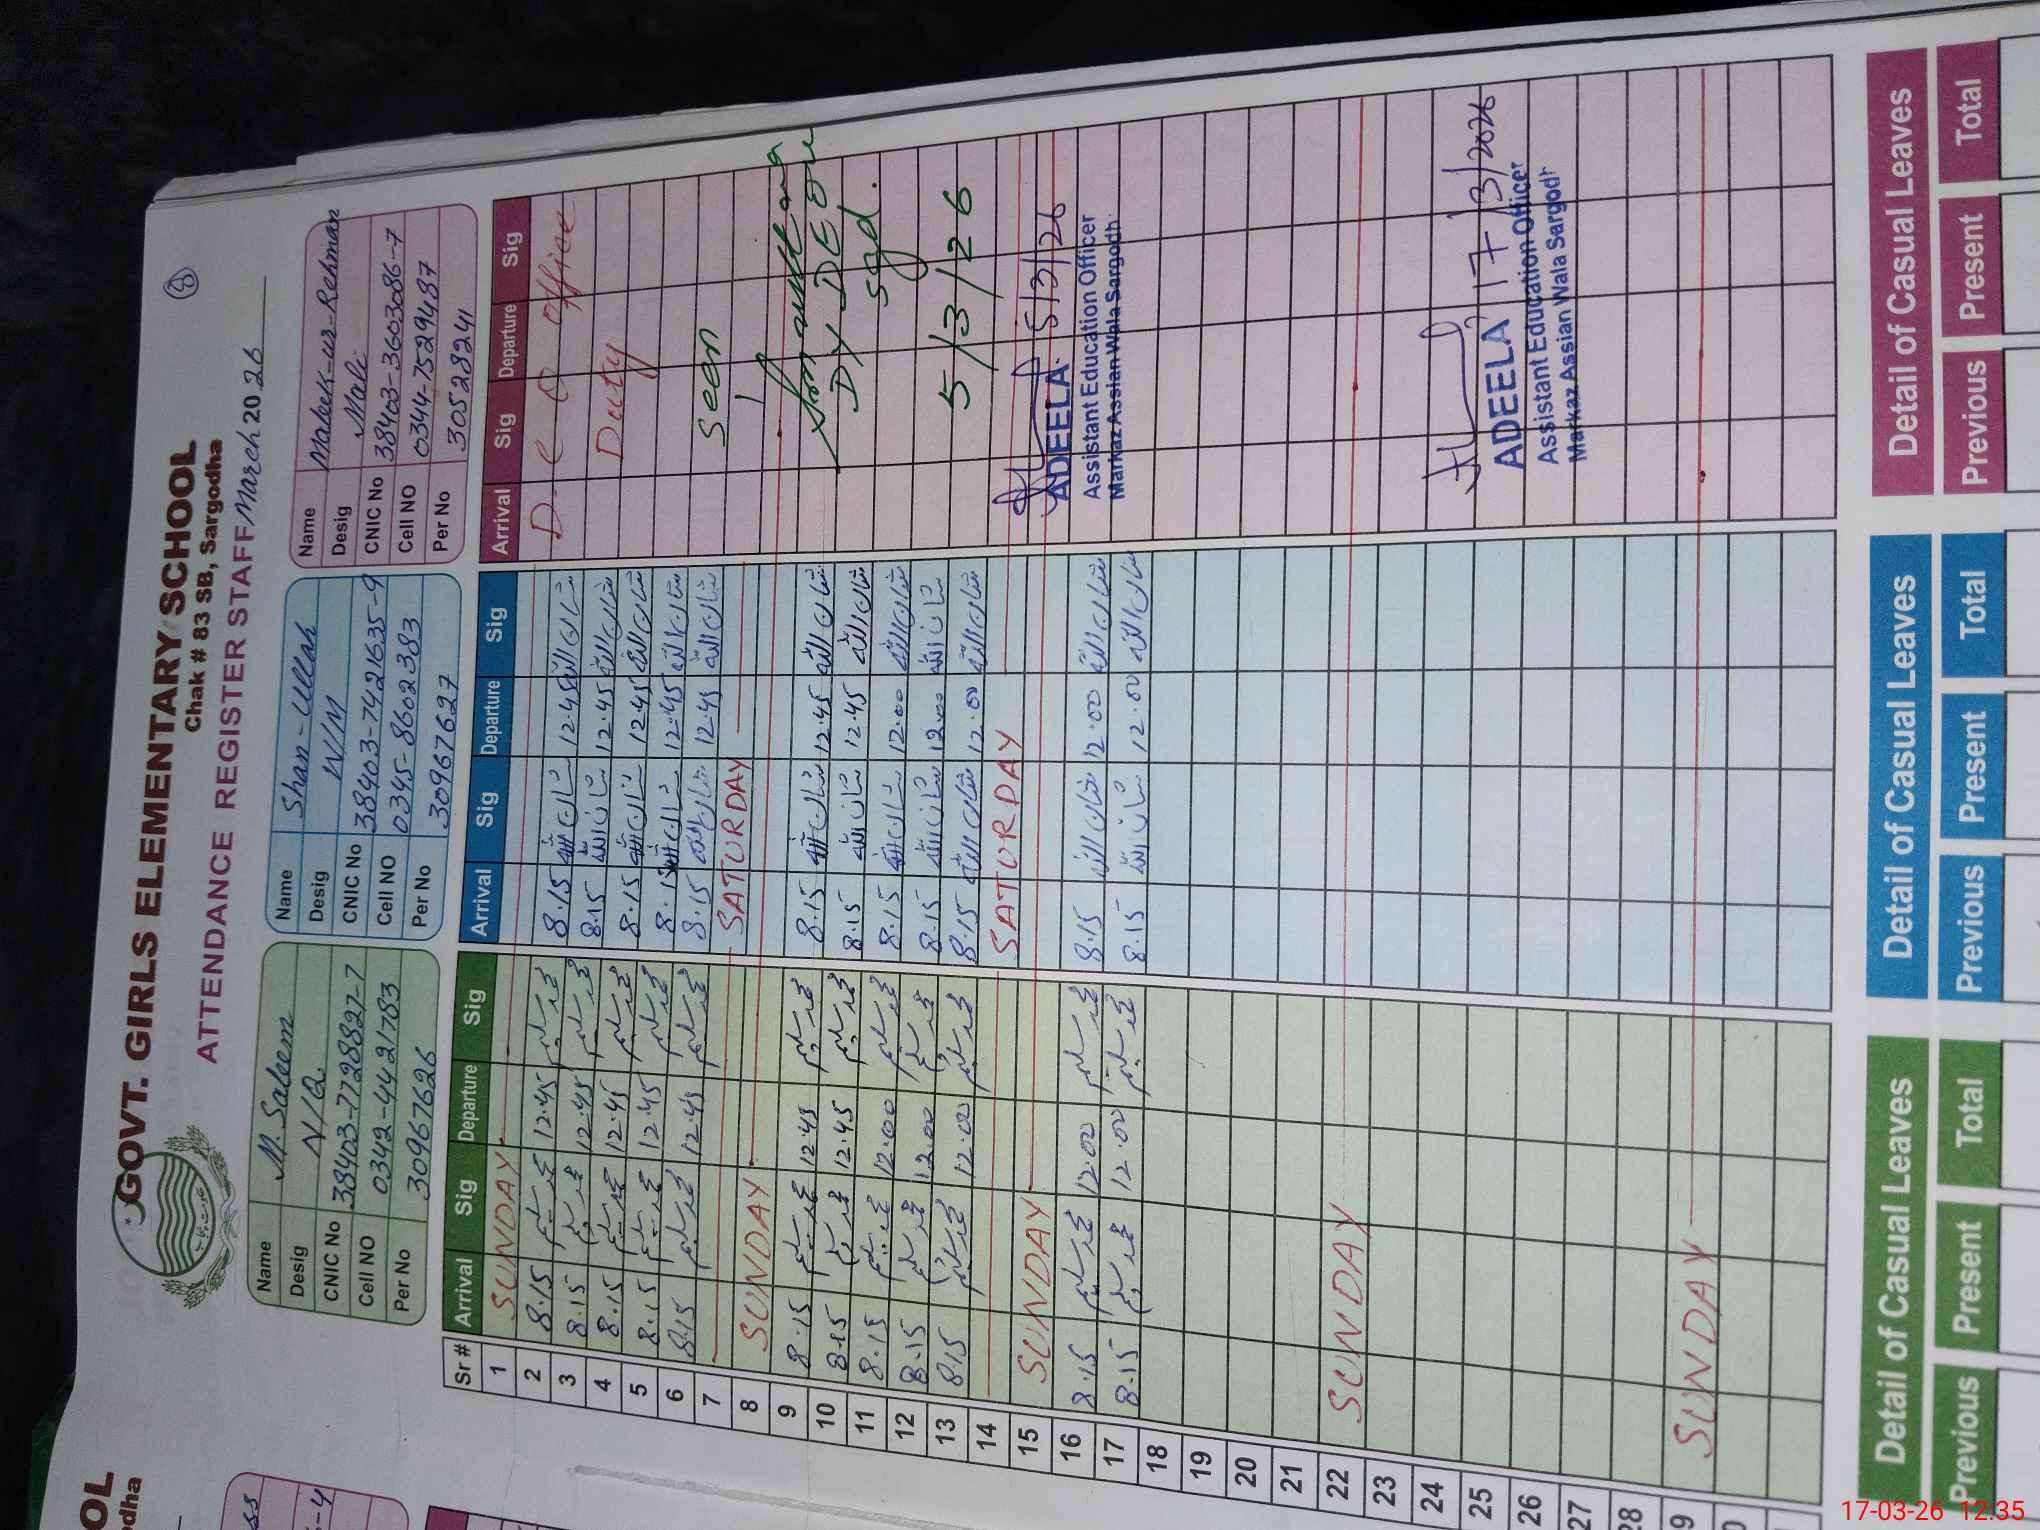 GOVT. GIRLS ELEMENTARY SCHOOL
Chak # 83 SB, Sargodha
ATTENDANCE REGISTER STAFF March 2026
8
Name M. Saleem
Desig N/Q
CNIC No 38403-7728827-7
Cell NO 0342-4421783
Per No 30967626
Name Shan-Ullah
Desig W/M
CNIC No 38403-7421635-9
Cell NO 0345-8602383
Per No 30967627
Name Maleek-ur-Rehman
Desig Mali
CNIC No 38403-3603086-7
Cell NO 0344-7529487
Per No 30528241
Sr # Arrival Sig Departure Sig Arrival Sig Departure Sig Arrival Sig Departure Sig
1 SUNDAY
2 8.15 12.45 8.15 شان اللہ 12.45 شان اللہ D. C O Office
3 8.15 12.45 8.15 شان اللہ 12.45 شان اللہ
4 8.15 12.45 8.15 شان اللہ 12.45 شان اللہ Duty
5 8.15 12.45 8.15 شان اللہ 12.45 شان اللہ
6 8.15 12.45 8.15 شان اللہ 12.45 شان اللہ
7 SATURDAY Seen
8 SUNDAY
9 8.15 12.45 8.15 شان اللہ 12.45 شان اللہ
10 8.15 12.45 8.15 شان اللہ 12.45 شان اللہ DY DEO
11 8.15 12.00 8.15 شان اللہ 12.00 شان اللہ Sgd.
12 8.15 12.00 8.15 شان اللہ 12.00 شان اللہ
13 8.15 12.00 8.15 شان اللہ 12.00 شان اللہ 5/3/26
14 SATURDAY
15 SUNDAY 5/3/26
ADEELA
Assistant Education Officer
Markaz Assian Wala Sargodh
16 8.15 12.00 8.15 شان اللہ 12.00 شان اللہ
17 8.15 12.00 8.15 شان اللہ 12.00 شان اللہ
18
19
20
21
22 SUNDAY
23
24
25 17/3/2026
ADEELA
Assistant Education Officer
Markaz Assian Wala Sargodh
26
27
28
9 SUNDAY
Detail of Casual Leaves Detail of Casual Leaves Detail of Casual Leaves
Previous Present Total Previous Present Total Previous Present Total
17-03-26 12:35